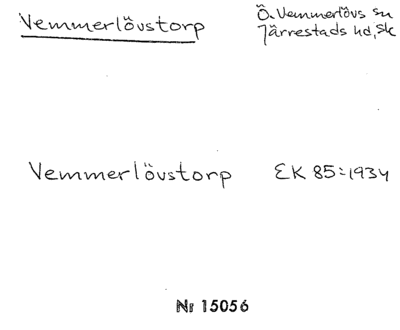 Vemmerlövstorp
Ö. Vemmerlövs sn
Järrestads hd, Sk
Vemmerlövstorp EK 85:1934
Nr 15056